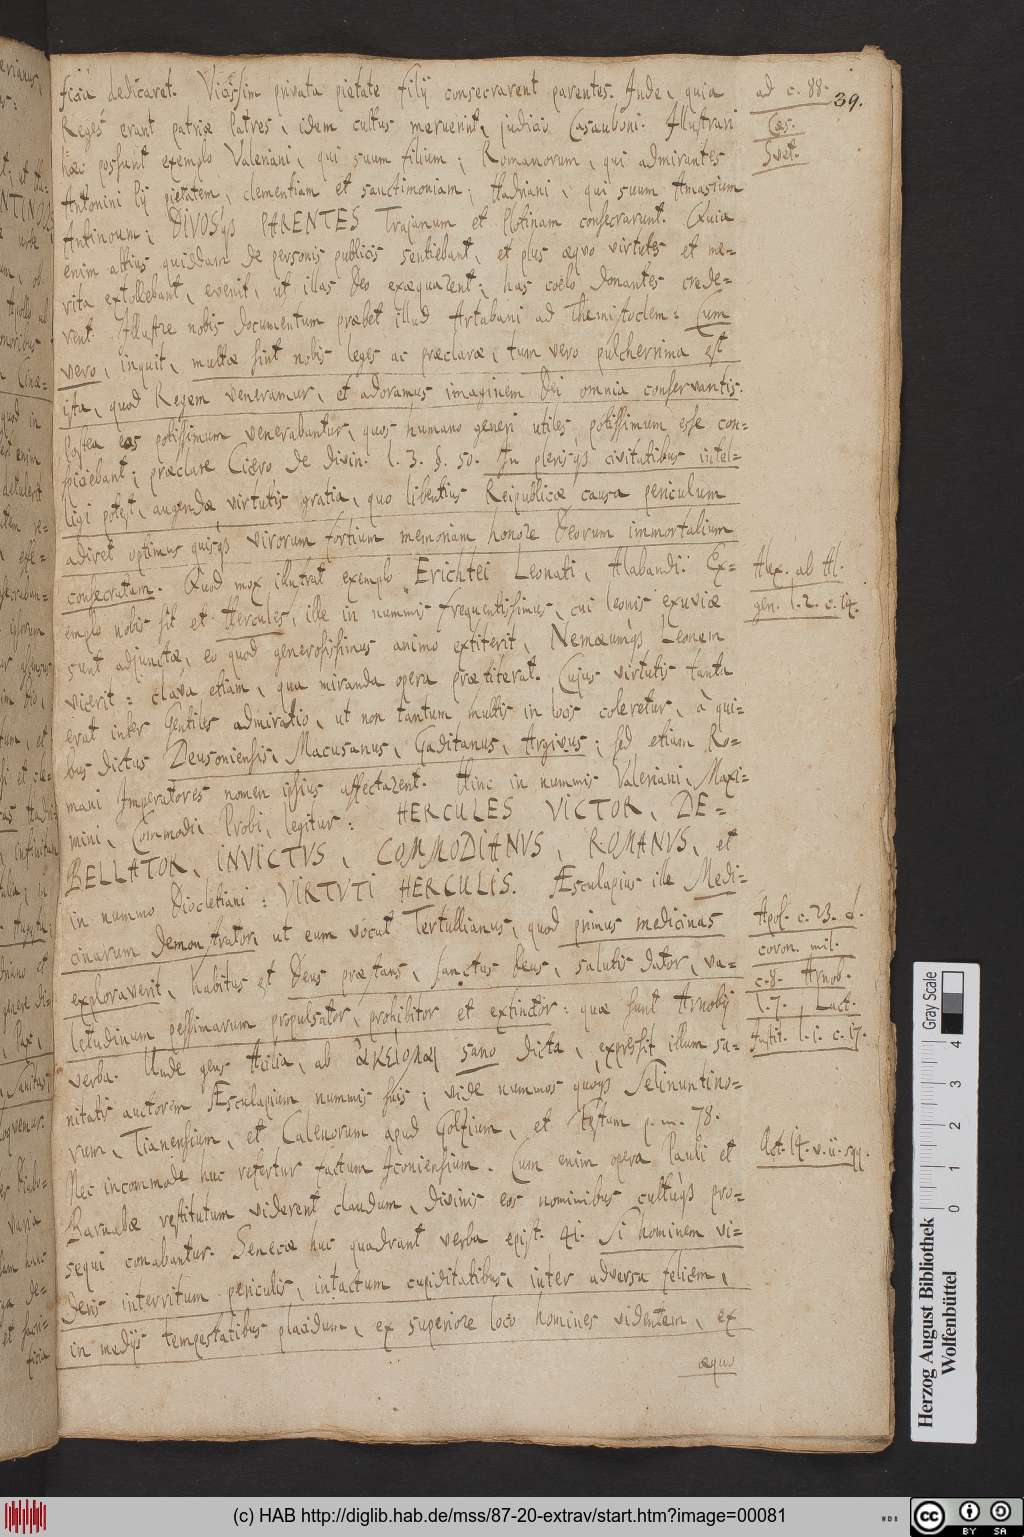 ficia dedicaret. Vicissim privata pietate filij consecrarent parentes. Inde, quia
Reges erant patriæ Patres, idem cultus meruerint, judicio Casauboni. Illustrari
hæc possunt exemplo Valeriani, qui suum filium; Romanorum, qui admirantes
Antonini Pij pietatem, clementiam et sanctimoniam; Hadriani, qui suum Amasium
Antinoum; DIVOSqs PARENTES Trajanum et Plotinam consecrarunt. Quia
enim altius quiddam de personis publicis sentiebant, et plus æquo virtutes et me=
rita extollebant, evenit, ut illas Deo exæquarent; has coelo donantes crede=
rent. Illustre nobis documentum præbet illud Artabani ad Themistoclem: Cum
vero, inquit, multæ sint nobis leges ac præclaræ, tum vero pulcherrima est
ista, quod Regem veneramur, et adoramus imaginem Dei omnia conservantis.
Postea eos potissimum venerabuntur, quos humano generi utiles potissimum esse con=
spiciebant; præclare Cicero de divin. l. 3. §. 50. In plerisqs civitatibus intel=
ligi potest, augendæ virtutis gratia, quo libentius Reipublicæ causa periculum
adiret optimus quisqs virorum fortium memoriam honore Deorum immortalium
consecratam. Quod mox illustrat exemplo Erichtei Leonati, Alabandi. Ex=
emplo nobis sit et Hercules, ille in nummis frequentissimus, cui leonis exuviæ
sunt adjunctæ, eo quod generosissimus animo extiterit, Nemæumqs Leonem
vicerit: clava etiam, qua miranda opera præstiterat. Cujus virtutis tanta
erat inter Gentiles admiratio, ut non tantum multis in locis coleretur, à qui=
bus dictus Deusoniensis, Macusanus, Gaditanus, Argivus; sed etiam Ro=
mani Imperatores nomen ipsius affectarent. Hinc in nummis Valeriani, Maxi=
mini, Commodi, Probi, legitur: HERCULES VICTOR, DE=
BELLATOR, INVICTVS, COMMODIANVS, ROMANVS, et
in nummo Diocletiani: VIRTVTI HERCULIS. Æsculapius ille Medi=
cinarum demonstrator, ut eum vocat Tertullianus, quod primus medicinas
exploraverit, habitus et Deus præstans, sanctus Deus, salutis dator, va=
letudinum pessimarum propulsator, prohibitor et extinctor: quæ sunt Arnobij
verba. Unde gens Acilia, ab sano dicta, expressit illum sa=
nitatis auctorem Æsculapium nummis suis; vide nummos quoqs Selinuntino=
rum, Tianensium, et Calenorum apud Golzium, et p. m. 78.
Nec incommode huc refertur factum Iconiensium. Cum enim opera Pauli et
Barnabæ restitutum viderent claudum, divinis eos nominibus cultuqs pro=
sequi conabantur. Senecæ huc quadrant verba epist. 41. Si hominem vi=
deris interritum periculis, intactum cupiditatibus, inter adversa felicem,
in medijs tempestatibus placidum, ex superiore loco homines videntem, ex
æquo
ad c. 88.
Cæs.
Svet.
39.
Alex. ab Al.
gen. l. 2. c. 14.
Apol. c. 23. d.
coron. mil.
c. 8. Arnob.
l. 7. Lact.
Instit. l. 1. c. 17.
Act. 14. v. 11. sqq.
Gray Scale
0 1 2 3 4
Herzog August Bibliothek
Wolfenbüttel
(c) HAB http://diglib.hab.de/mss/87-20-extrav/start.htm?image=00081
cc BY SA